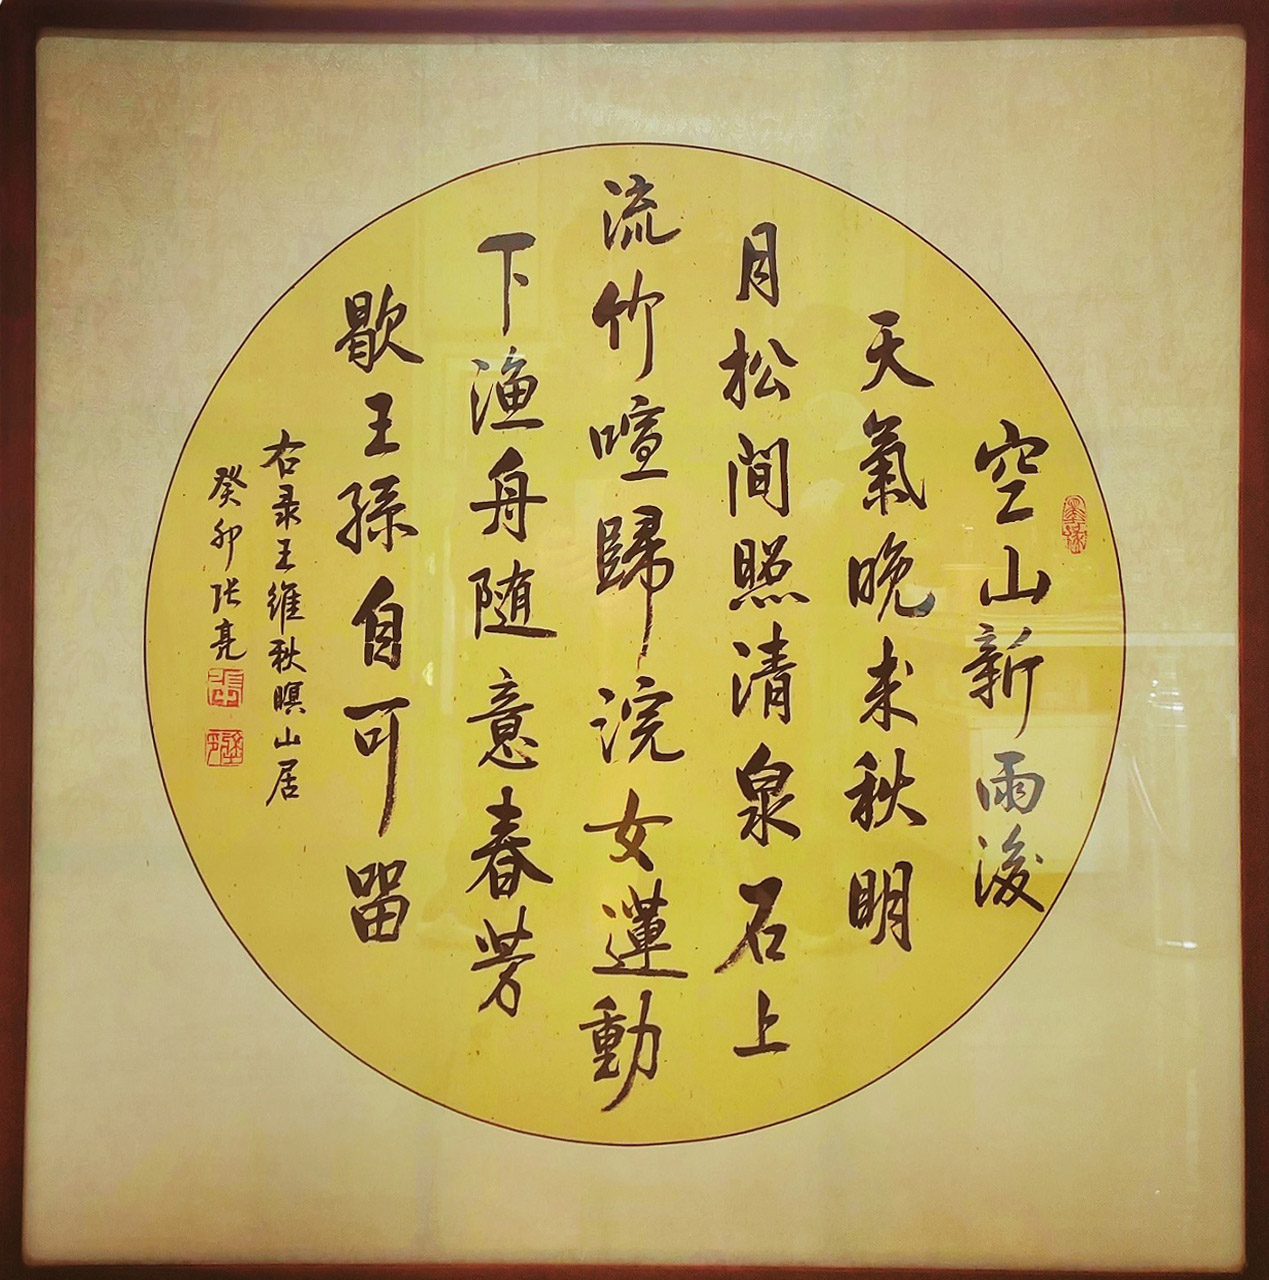 空山新雨後
天氣晚来秋明
月松間照清泉石上
流竹喧歸浣女蓮動
下渔舟随意春芳
歇王孫自可留
右录王維秋暝山居
癸卯张亮